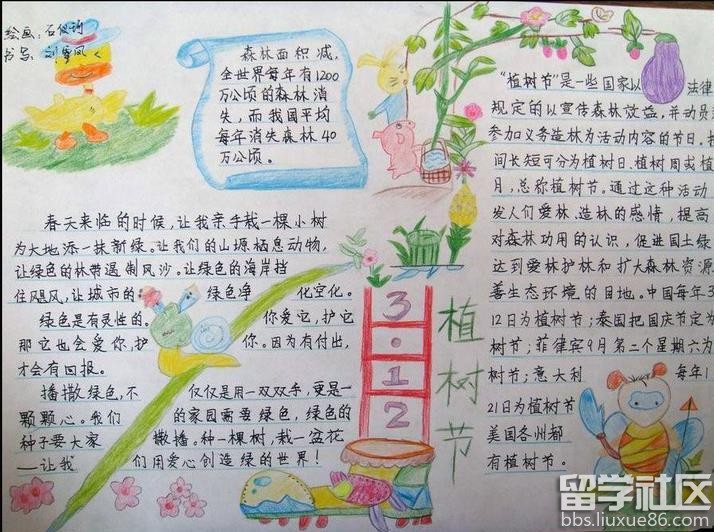 绘画:石仪
书写:刘雪凤
森林面积减,
全世界每年有1200
万公顷的森林消
失,而我国平均
每年消失森林40
万公顷。
春天来临的时候,让我亲手栽一棵小树
为大地添一抹新绿。让我们的山塬栖息动物,
让绿色的林带遏制风沙。让绿色的海岸挡
住飓风,让城市的绿色净化空化。
绿色是有灵性的。你爱它,护它
那它也会爱你,护你。因为有付出,
才会有回报。
播撒绿色,不仅仅是用一双双手,更是一
颗颗心。我们的家园需要绿色,绿色的
种子要大家撒播。种一棵树,栽一盆花
——让我们用爱心创造绿的世界!
3·12
植树节
“植树节”是一些国家以法律
规定的以宣传森林效益,并动员
参加义务造林为活动内容的节日。
间长短可分为植树日、植树周或植
月,总称植树节。通过这种活动
发人们爱林、造林的感情,提高
对森林功用的认识,促进国土绿
达到爱林护林和扩大森林资源
善生态环境的目地。中国每年3
12日为植树节;泰国把国庆节定为
树节;菲律宾9月第二个星期六为
树节;意大利每年1
21日为植树节
美国各州都
有植树节。
留学社区
bbs.liuxue86.com